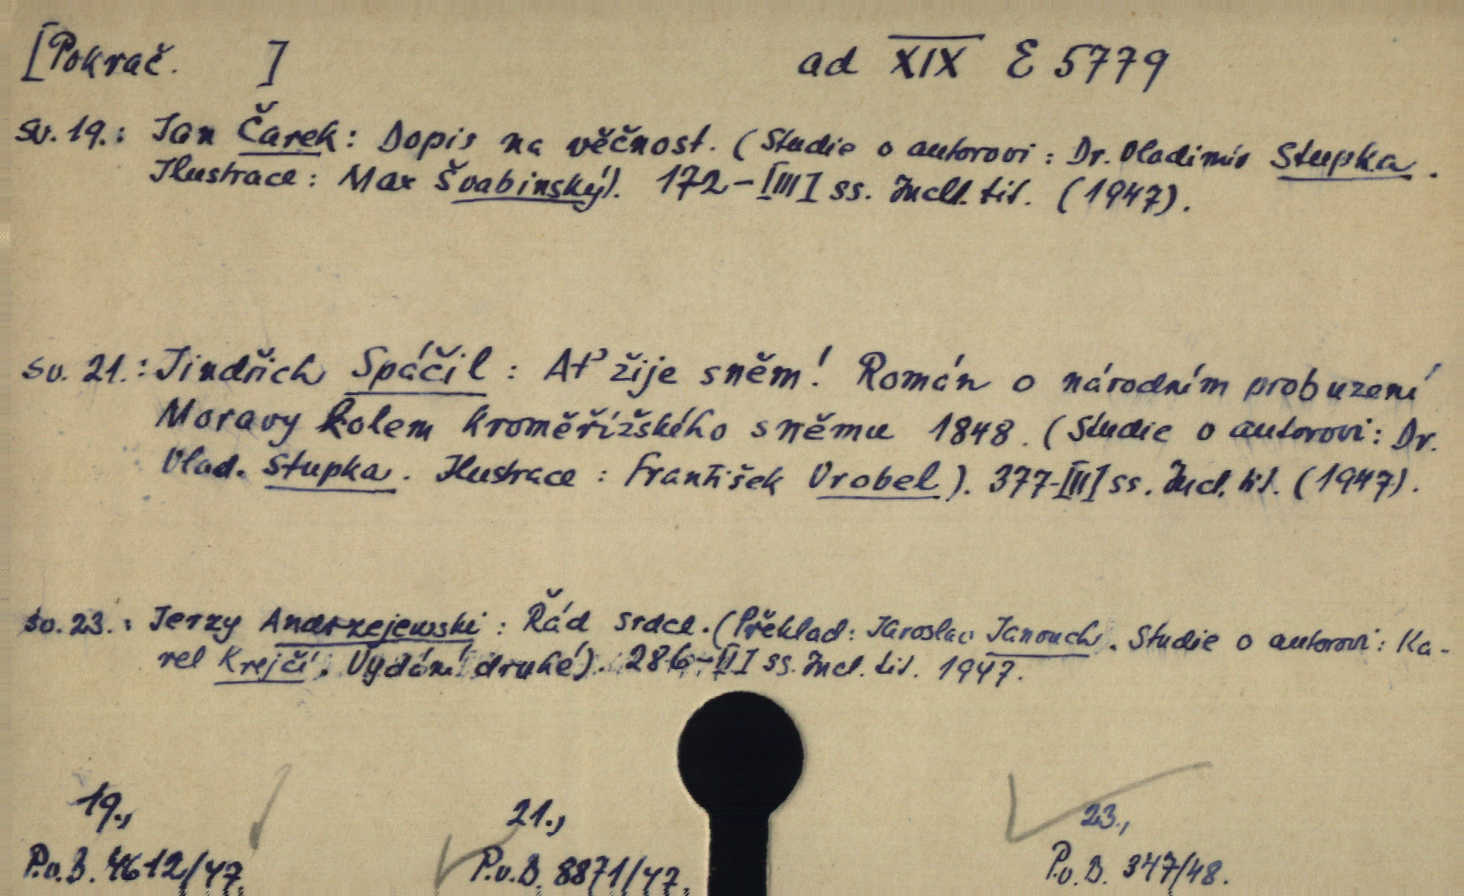 [Pokrač. ] ad XIX E 5779
sv. 19.: Jan Čarek: Dopis na věčnost. (Studie o autorovi: Dr. Vladimír Stupka.
Ilustrace: Max Švabinský). 172-[III] ss. Incl. tit. (1947).
sv. 21.: Jindřich Spáčil: Ať žije sněm! Román o národním probuzení
Moravy kolem kroměřížského sněmu 1848. (Studie o autorovi: Dr.
Vlad. Stupka. Ilustrace: František Vrobel). 377-[II] ss. Incl. tit. (1947).
sv. 23.: Jerzy Andrzejewski: Řád srdce. (Překlad: Jaroslav Janouch. Studie o autorovi: Ka-
rel Krejčí. Vydání druhé). 286-[I] ss. Incl. tit. 1947.
19., 21., 23.,
P.v.B. 4612/47. P.v.B. 8871/47. P.v.B. 347/48.